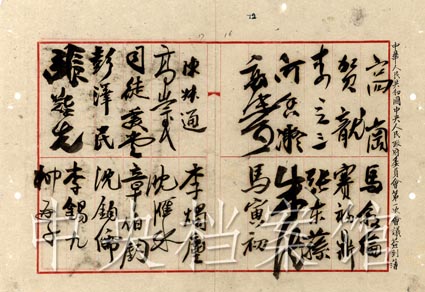 中華人民共和國中央人民政府委員會第一次會議簽到簿
高崗 馬敘倫
賀龍 賽福鼎
李立三 張東蓀
何香凝
馬寅初
陳叔通 李燭塵
高崇民 沈雁冰
司徒美堂 章伯鈞
彭澤民 沈鈞儒
張難先 李錫九
柳亞子
中央档案馆